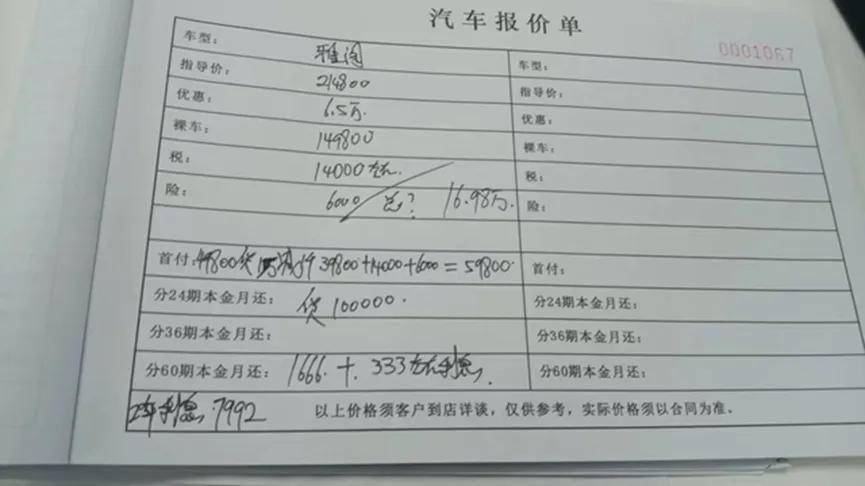 汽车报价单
0001067
车型: 雅阁 车型:
指导价: 214800 指导价:
优惠: 6.5万. 优惠:
裸车: 149800 裸车:
税: 14000左右. 税:
险: 6000 总? 16.98万. 险:
首付: 49800 39800+14000+6000=59800. 首付:
分24期本金月还: 贷100000. 分24期本金月还:
分36期本金月还: 分36期本金月还:
分60期本金月还: 1666.+333左右利息. 分60期本金月还:
2年利息:7992 以上价格须客户到店详谈，仅供参考，实际价格须以合同为准。